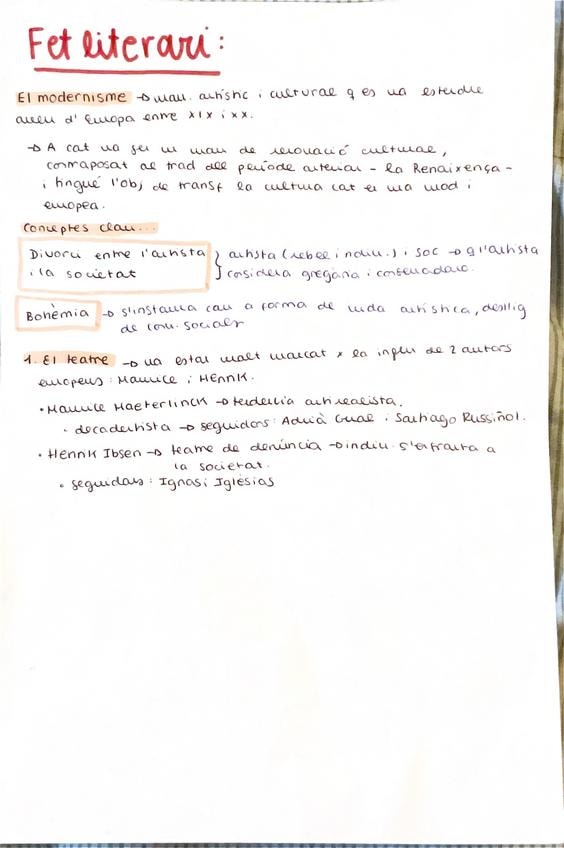 Fet literari:
El modernisme → mov. artístic i cultural q es va estendre
arreu d'Europa entre XIX i XX.
→ A cat va ser un mov de renovació cultural,
contraposat al trad del període anterior - la Renaixença -
i tingué l'obj de transf la cultura cat en una mod i
europea.
Conceptes clau...
Divorci entre l'artista
i la societat
artista (rebel i indiv.) i soc → q l'artista
considera gregària i conservadora.
Bohèmia → s'instaura com a forma de vida artística, desllig
de conv. socials
1. El teatre → va estar molt marcat x la influ de 2 autors
europeus: Maurice i Henrik.
• Maurice Maeterlinck → tendència antirealista.
• decadentista → seguidors: Adrià Gual i Santiago Russiñol.
• Henrik Ibsen → teatre de denúncia → indiv. s'enfronta a
la societat.
• seguidors: Ignasi Iglésias